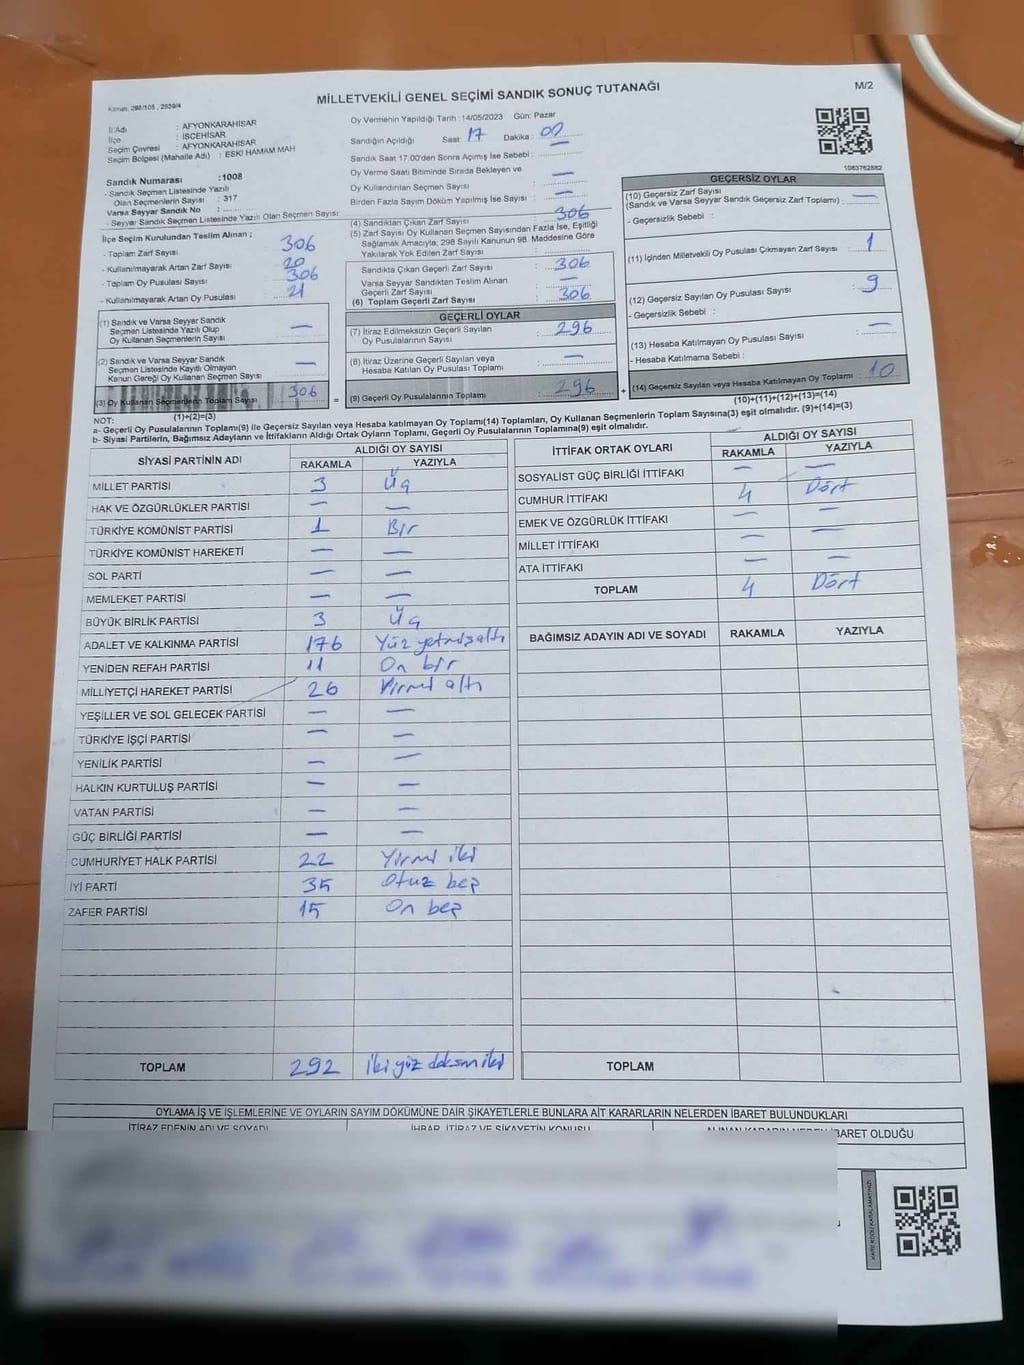 MİLLETVEKİLİ GENEL SEÇİMİ SANDIK SONUÇ TUTANAĞI
M/2
Kanun: 298/105, 2839/4
İl Adı : AFYONKARAHİSAR
İlçe : İSCEHİSAR
Seçim Çevresi : AFYONKARAHİSAR
Seçim Bölgesi (Mahalle Adı) : ESKİ HAMAM MAH
Sandık Numarası :1008
- Sandık Seçmen Listesinde Yazılı
Olan Seçmenlerin Sayısı : 317
Varsa Seyyar Sandık No :
- Seyyar Sandık Seçmen Listesinde Yazılı Olan Seçmen Sayısı:
İlçe Seçim Kurulundan Teslim Alınan ;
- Toplam Zarf Sayısı 306
- Kullanılmayarak Artan Zarf Sayısı 20
- Toplam Oy Pusulası Sayısı 306
- Kullanılmayarak Artan Oy Pusulası 21
(1) Sandık ve Varsa Seyyar Sandık
Seçmen Listesinde Yazılı Olup
Oy Kullanan Seçmenlerin Sayısı : —
(2) Sandık ve Varsa Seyyar Sandık
Seçmen Listesinde Kayıtlı Olmayan
Kanun Gereği Oy Kullanan Seçmen Sayısı : —
(3) Oy Kullanan Seçmenlerin Toplam Sayısı : 306
(1)+(2)=(3)
Oy Vermenin Yapıldığı Tarih : 14/05/2023 Gün: Pazar
Sandığın Açıldığı Saat : 17 Dakika : 00
Sandık Saat 17:00'den Sonra Açılmış İse Sebebi :
Oy Verme Saati Bitiminde Sırada Bekleyen ve
Oy Kullandırılan Seçmen Sayısı : —
Birden Fazla Sayım Döküm Yapılmış İse Sayısı : —
(4) Sandıktan Çıkan Zarf Sayısı : 306
(5) Zarf Sayısı Oy Kullanan Seçmen Sayısından Fazla İse, Eşitliği
Sağlamak Amacıyla, 298 Sayılı Kanunun 98. Maddesine Göre
Yakılarak Yok Edilen Zarf Sayısı :
Sandıkta Çıkan Geçerli Zarf Sayısı : 306
Varsa Seyyar Sandıktan Teslim Alınan
Geçerli Zarf Sayısı : —
(6) Toplam Geçerli Zarf Sayısı : 306
GEÇERLİ OYLAR
(7) İtiraz Edilmeksizin Geçerli Sayılan
Oy Pusulasının Sayısı : 296
(8) İtiraz Üzerine Geçerli Sayılan veya
Hesaba Katılan Oy Pusulası Toplamı : —
= (9) Geçerli Oy Pusulalarının Toplamı : 296 +
1083762882
GEÇERSİZ OYLAR
(10) Geçersiz Zarf Sayısı
(Sandık ve Varsa Seyyar Sandık Geçersiz Zarf Toplamı) : —
- Geçersizlik Sebebi :
(11) İçinden Milletvekili Oy Pusulası Çıkmayan Zarf Sayısı : 1
(12) Geçersiz Sayılan Oy Pusulası Sayısı : 9
- Geçersizlik Sebebi :
(13) Hesaba Katılmayan Oy Pusulası Sayısı : —
- Hesaba Katılmama Sebebi :
(14) Geçersiz Sayılan veya Hesaba Katılmayan Oy Toplamı : 10
(10)+(11)+(12)+(13)=(14)
NOT:
a- Geçerli Oy Pusulalarının Toplamı(9) ile Geçersiz Sayılan veya Hesaba katılmayan Oy Toplamı(14) Toplamları, Oy Kullanan Seçmenlerin Toplam Sayısına(3) eşit olmalıdır. (9)+(14)=(3)
b- Siyasi Partilerin, Bağımsız Adayların ve İttifakların Aldığı Ortak Oyların Toplamı, Geçerli Oy Pusulalarının Toplamına(9) eşit olmalıdır.
SİYASİ PARTİNİN ADI ALDIĞI OY SAYISI
RAKAMLA YAZIYLA
MİLLET PARTİSİ 3 Üç
HAK VE ÖZGÜRLÜKLER PARTİSİ — —
TÜRKİYE KOMÜNİST PARTİSİ 1 Bir
TÜRKİYE KOMÜNİST HAREKETİ — —
SOL PARTİ — —
MEMLEKET PARTİSİ — —
BÜYÜK BİRLİK PARTİSİ 3 Üç
ADALET VE KALKINMA PARTİSİ 176 Yüz yetmişaltı
YENİDEN REFAH PARTİSİ 11 On bir
MİLLİYETÇİ HAREKET PARTİSİ 26 Yirmi altı
YEŞİLLER VE SOL GELECEK PARTİSİ — —
TÜRKİYE İŞÇİ PARTİSİ — —
YENİLİK PARTİSİ — —
HALKIN KURTULUŞ PARTİSİ — —
VATAN PARTİSİ — —
GÜÇ BİRLİĞİ PARTİSİ — —
CUMHURİYET HALK PARTİSİ 22 Yirmi iki
İYİ PARTİ 35 Otuz beş
ZAFER PARTİSİ 15 On beş
TOPLAM 292 İki yüz doksan iki
İTTİFAK ORTAK OYLARI ALDIĞI OY SAYISI
RAKAMLA YAZIYLA
SOSYALİST GÜÇ BİRLİĞİ İTTİFAKI — —
CUMHUR İTTİFAKI 4 Dört
EMEK VE ÖZGÜRLÜK İTTİFAKI — —
MİLLET İTTİFAKI — —
ATA İTTİFAKI — —
TOPLAM 4 Dört
BAĞIMSIZ ADAYIN ADI VE SOYADI RAKAMLA YAZIYLA
TOPLAM
OYLAMA İŞ VE İŞLEMLERİNE VE OYLARIN SAYIM DÖKÜMÜNE DAİR ŞİKAYETLERLE BUNLARA AİT KARARLARIN NELERDEN İBARET BULUNDUKLARI
İTİRAZ EDENİN ADI VE SOYADI İHBAR, İTİRAZ VE ŞİKAYETİN KONUSU ALINAN KARARIN NEDEN İBARET OLDUĞU
KARE KODU KARALAMAYINIZ!